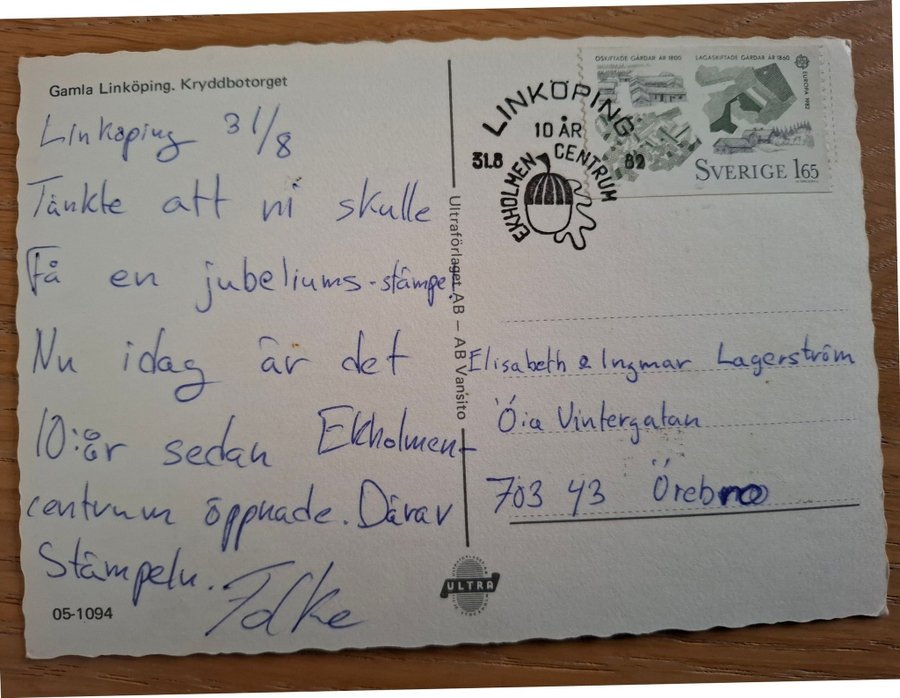 Gamla Linköping. Kryddbotorget
Linköping 31/8
Tänkte att ni skulle
Få en jubeliums-stämpel.
Nu idag är det
10:år sedan Ekholmen-
centrum öppnade. Därav
Stämpeln.
Folke
05-1094
Ultraförlaget AB – AB Vansito
ULTRA
LINKÖPING
10 ÅR
31.8 82
EKHOLMEN CENTRUM
OSKIFTADE GÅRDAR ÅR 1800
LAGASKIFTADE GÅRDAR ÅR 1860
EUROPA 1982
SVERIGE 165
Elisabeth & Ingmar Lagerström
Ö:a Vintergatan
703 43 Örebro